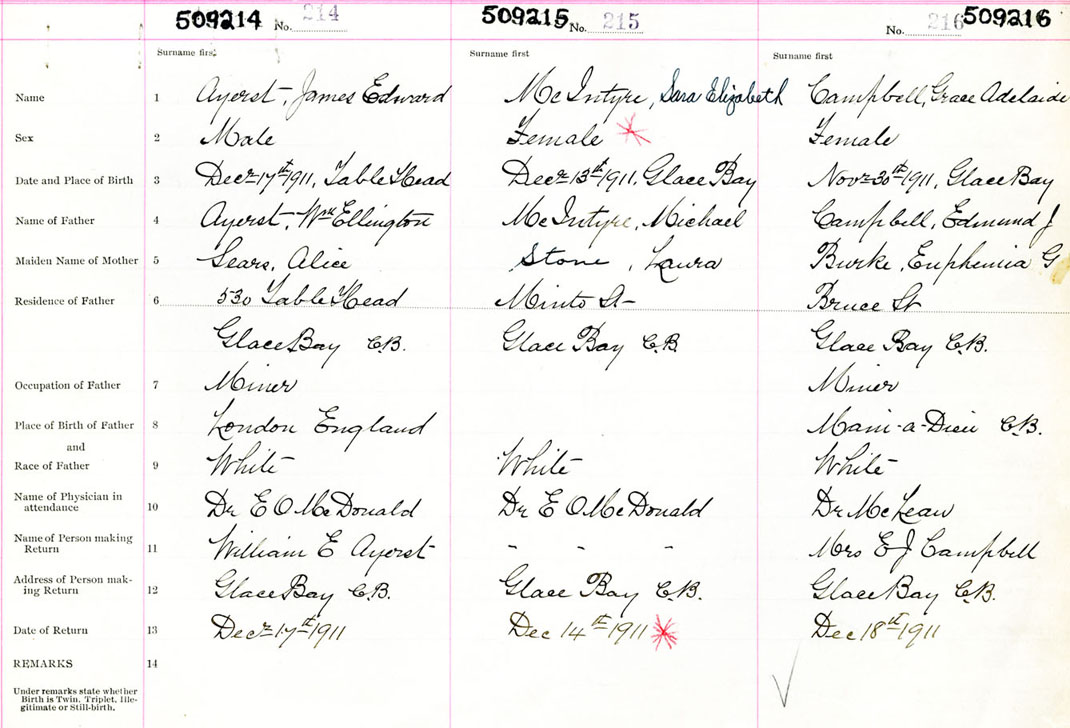 509214 No. 214 509215 No. 215 No. 216 509216
Surname first Surname first Surname first
Name 1 Ayerst, James Edward McIntyre, Sara Elizabeth Campbell, Grace Adelaide
Sex 2 Male Female Female
Date and Place of Birth 3 Decr 17th 1911, Table Head Decr 13th 1911, Glace Bay Novr 30th 1911, Glace Bay
Name of Father 4 Ayerst, Wm Ellington McIntyre, Michael Campbell, Edmund J
Maiden Name of Mother 5 Sears, Alice Stone, Laura Burke, Euphemia G
Residence of Father 6 530 Table Head Minto St Bruce St
Glace Bay C.B. Glace Bay C.B. Glace Bay C.B.
Occupation of Father 7 Miner Miner
Place of Birth of Father 8 London England Main-a-Dieu C.B.
and
Race of Father 9 White White White
Name of Physician in
attendance 10 Dr E O McDonald Dr E O McDonald Dr McLean
Name of Person making
Return 11 William E Ayerst - - - Mrs E J Campbell
Address of Person mak-
ing Return 12 Glace Bay C.B. Glace Bay C.B. Glace Bay C.B.
Date of Return 13 Decr 17th 1911 Dec 14th 1911 Dec 18th 1911
REMARKS 14
Under remarks state whether
Birth is Twin, Triplet, Ille-
gitimate or Still-birth.